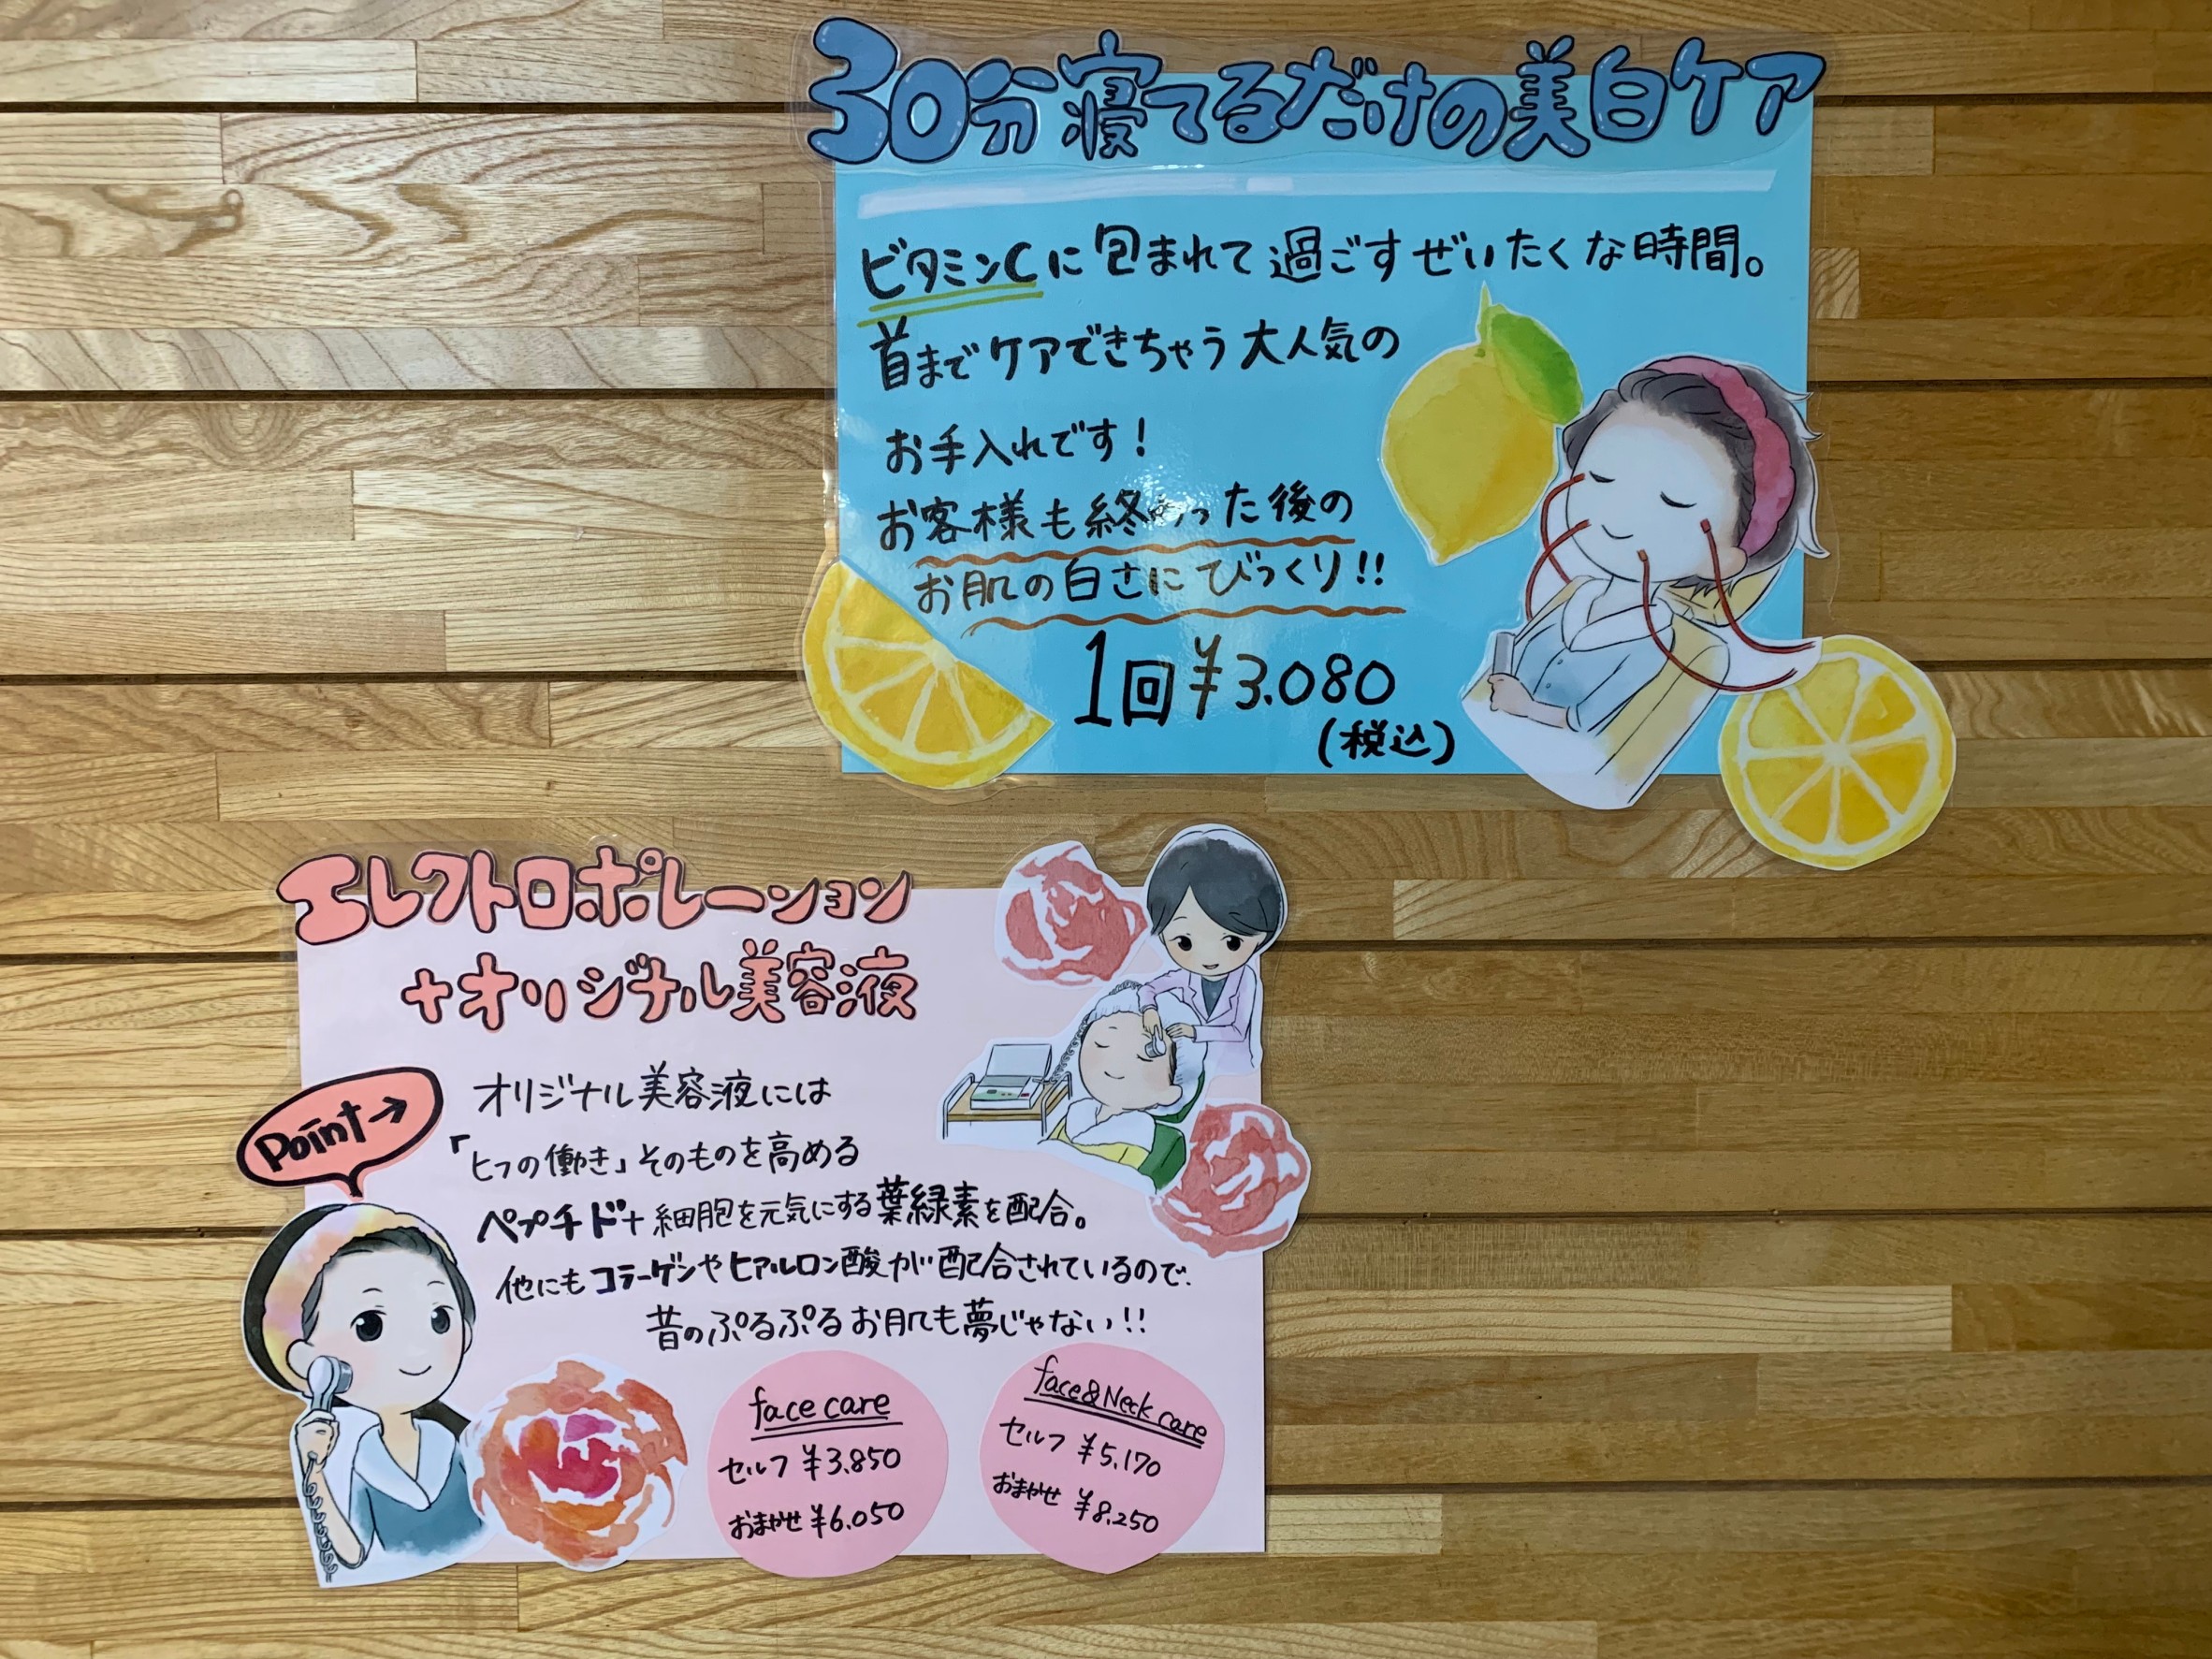 30分寝てるだけの美白ケア
ビタミンCに包まれて過ごすぜいたくな時間。
首までケアできちゃう大人気の
お手入れです！
お客様も終わった後の
お肌の白さにびっくり!!
1回¥3.080
(税込)
エレクトロポレーション
+オリジナル美容液
Point→
オリジナル美容液には
「ヒフの働き」そのものを高める
ペプチド+細胞を元気にする葉緑素を配合。
他にもコラーゲンやヒアルロン酸が配合されているので、
昔のぷるぷるお肌も夢じゃない!!
face care
セルフ ¥3.850
おまかせ ¥6.050
face&Neck care
セルフ ¥5.170
おまかせ ¥8.250